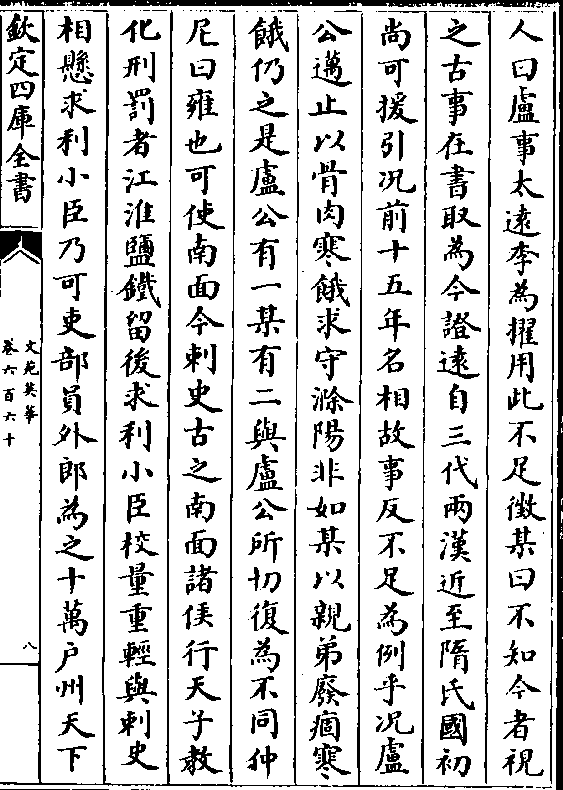 人曰盧事太遠李為擢用此不足徴某曰不知今者視
之古事在書取為今證遠自三代兩漢近至隋氏國初
尚可援引况前十五年名相故事反不足為例乎况盧
公邁止以骨肉寒餓求守滁陽非如某以親弟廢痼寒
餓仍之是盧公有一某有二與盧公所切復為不同仲
尼曰雍也可使南面今刺史古之南面諸侯行天子教
化刑罰者江淮鹽鐵留後求利小臣校量重輕與刺史
相懸求利小臣乃可吏部員外郎為之十萬户州天下
欽定四庫全書
文苑英華
卷六百六十
八